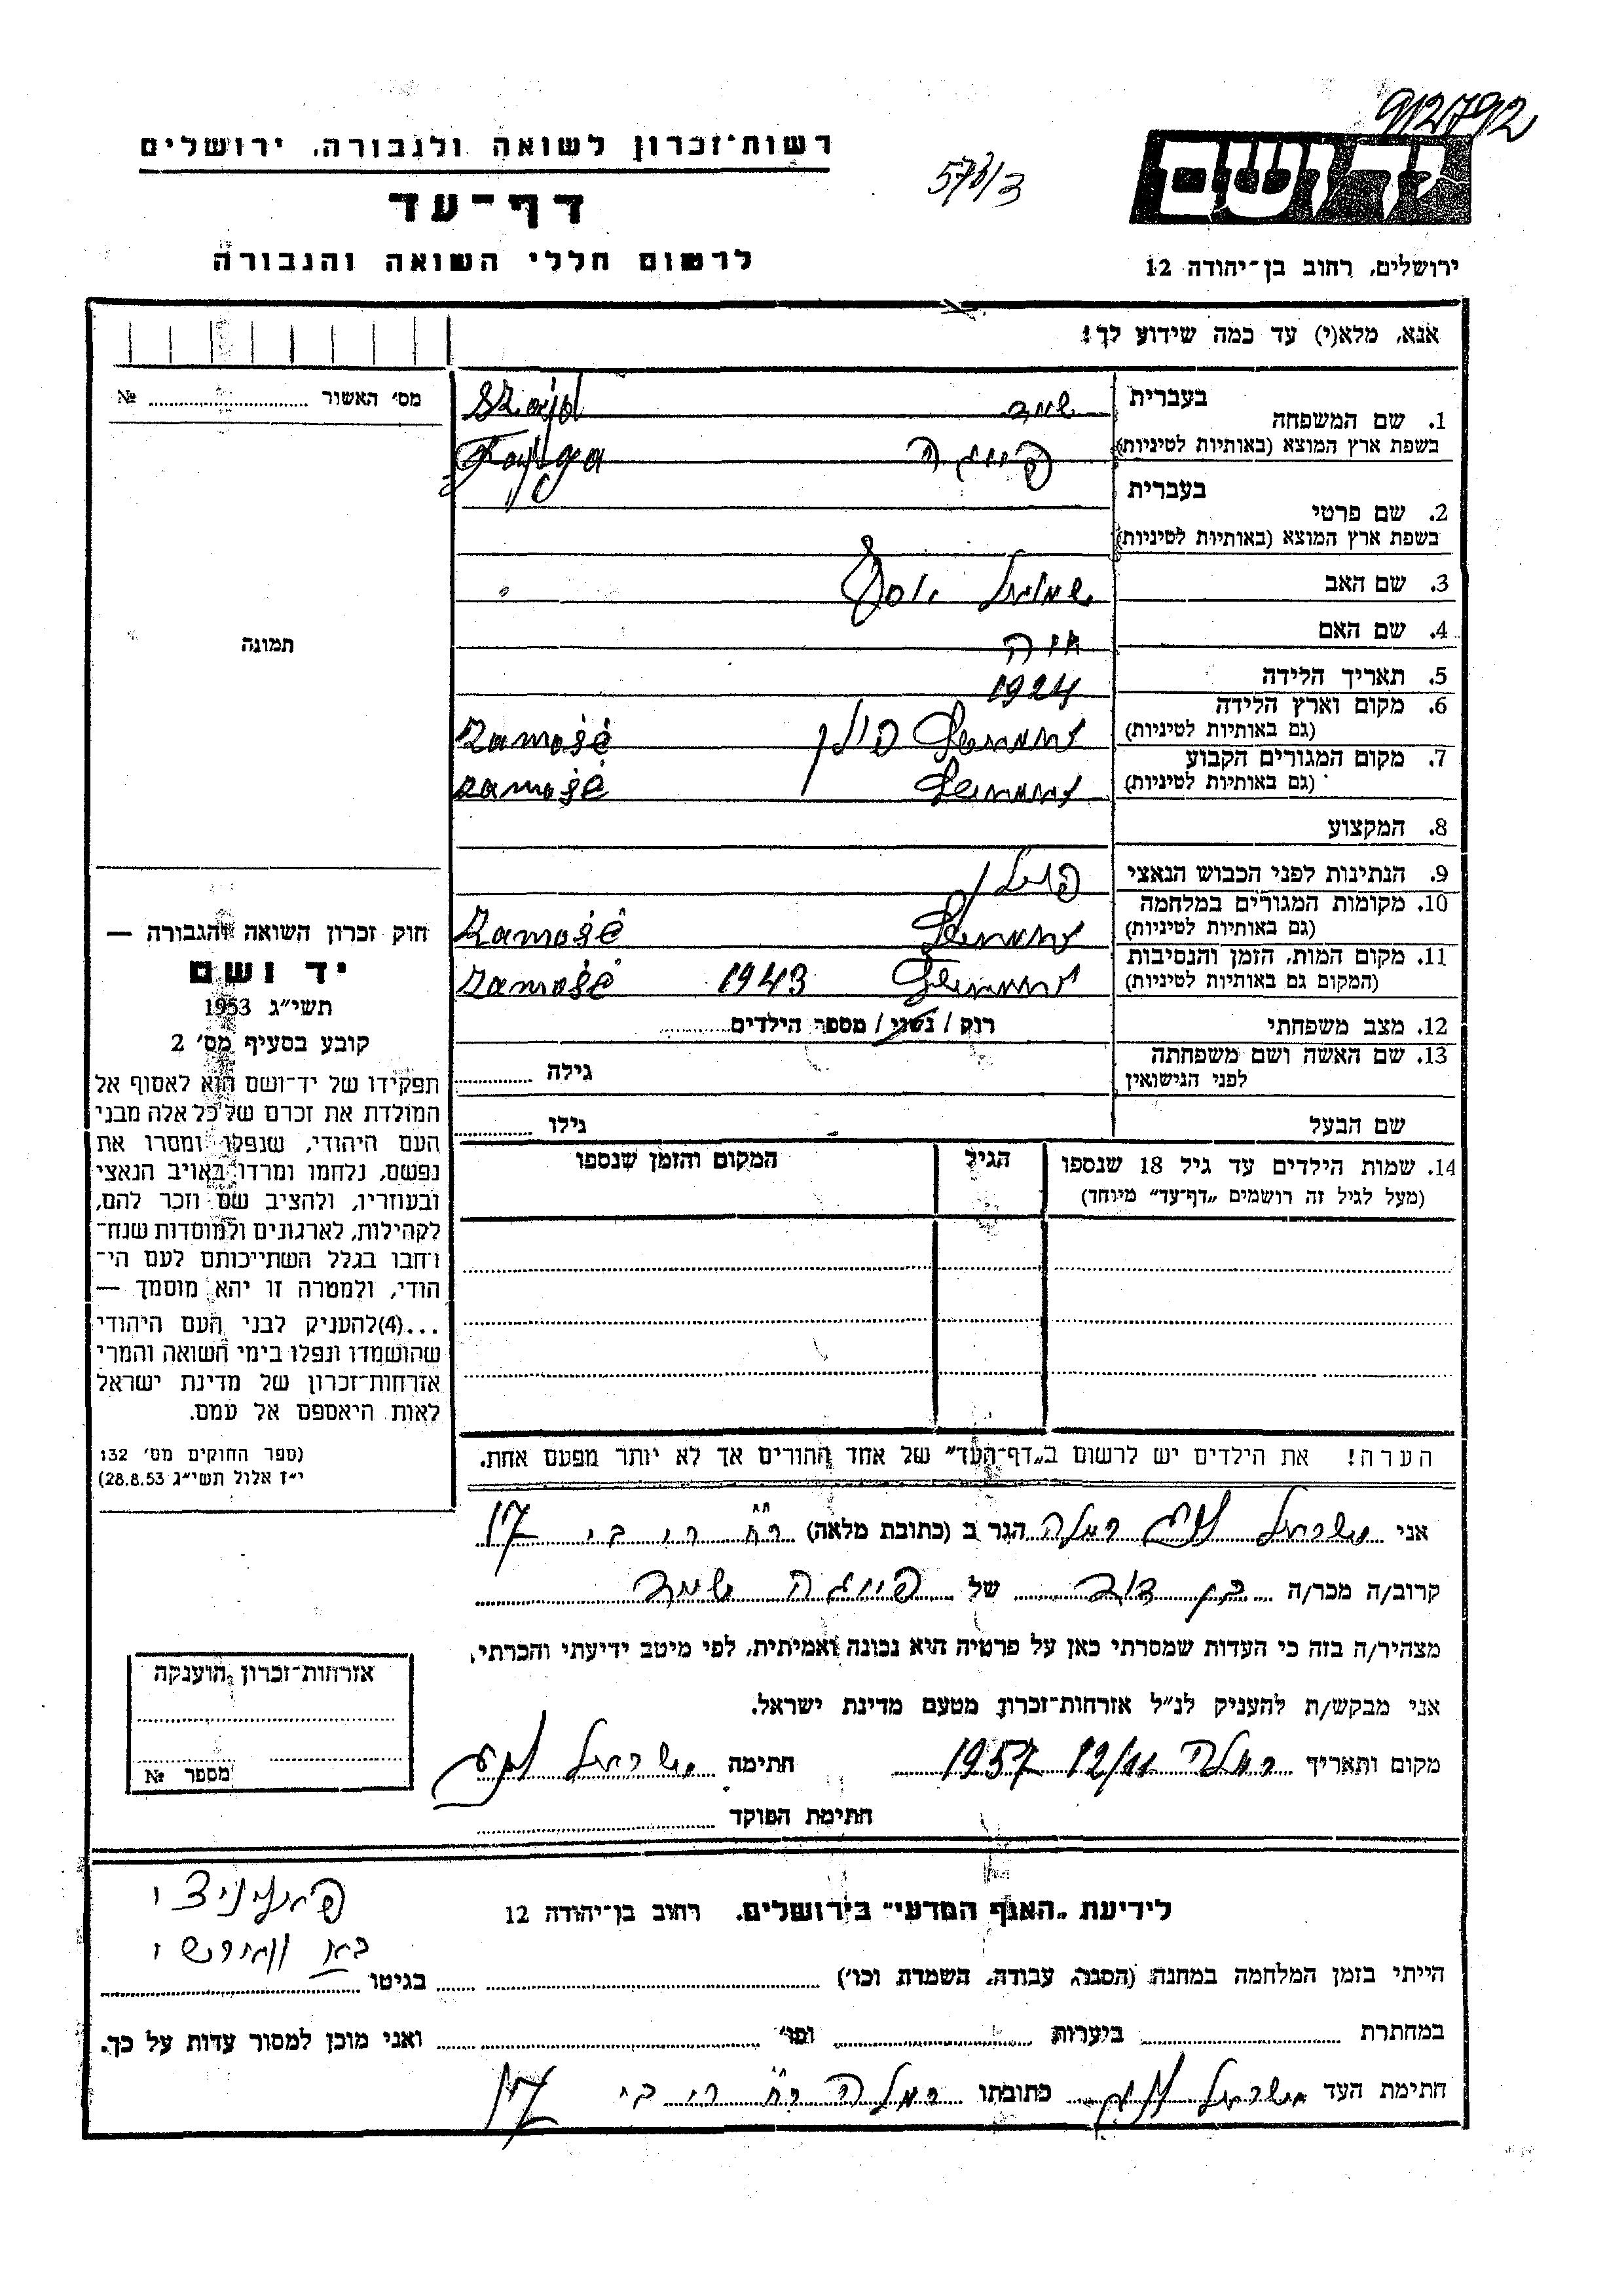 912792
רשות־זכרון לשואה ולגבורה, ירושלים
573/3
יד ושם
דף־עד
לרשום חללי השואה והגבורה
ירושלים, רחוב בן־יהודה 12
אנא, מלא(י) עד כמה שידוע לך!
מס׳ האשור № ........
1. שם המשפחה בעברית שייד Szajd
בשפת ארץ המוצא (באותיות לטיניות) פייגה Fajga
2. שם פרטי בעברית
בשפת ארץ המוצא (באותיות לטיניות)
3. שם האב שמואל יוסף
4. שם האם חיה
תמונה
5. תאריך הלידה 1924
6. מקום וארץ הלידה (גם באותיות לטיניות) זאמאשץ פולין Zamość
7. מקום המגורים הקבוע (גם באותיות לטיניות) זאמאשץ Zamość
8. המקצוע
9. הנתינות לפני הכבוש הנאצי פולין
10. מקומות המגורים במלחמה (גם באותיות לטיניות) זאמאשץ Zamość
11. מקום המות, הזמן והנסיבות (המקום גם באותיות לטיניות) זאמאשץ 1943 Zamość
12. מצב משפחתי רוק / נשוי / מספר הילדים........
13. שם האשה ושם משפחתה לפני הנישואין גילה ........
שם הבעל גילו ........
14. שמות הילדים עד גיל 18 שנספו הגיל המקום והזמן שנספו
(מעל לגיל זה רושמים „דף־עד״ מיוחד)
חוק זכרון השואה והגבורה —
יד ושם
תשי״ג 1953
קובע בסעיף מס׳ 2
תפקידו של יד־ושם הוא לאסוף אל
המולדת את זכרם של כל אלה מבני
העם היהודי, שנפלו ומסרו את
נפשם, נלחמו ומרדו באויב הנאצי
ובעוזריו, ולהציב שם וזכר להם,
לקהילות, לארגונים ולמוסדות שנח־
רבו בגלל השתייכותם לעם הי־
הודי, ולמטרה זו יהא מוסמך —
...(4)להעניק לבני העם היהודי
שהושמדו ונפלו בימי השואה והמרי
אזרחות־זכרון של מדינת ישראל
לאות היאספם אל עמם.
(ספר החוקים מס׳ 132
י״ז אלול תשי״ג 28.8.53)
הערה! את הילדים יש לרשום ב„דף־העד״ של אחד ההורים אך לא יותר מפעם אחת.
אני ישראל רמלה הגר ב (כתובת מלאה) 17
קרוב/ה מכר/ה בן דוד של פייגה שייד
מצהיר/ה בזה כי העדות שמסרתי כאן על פרטיה היא נכונה ואמיתית, לפי מיטב ידיעתי והכרתי.
אני מבקש/ת להעניק לנ״ל אזרחות־זכרון מטעם מדינת ישראל.
מקום ותאריך רמלה 12/11 1957 חתימה ישראל
חתימת הפוקד
אזרחות־זכרון הוענקה
מספר №
לידיעת „האגף המדעי״ בירושלים, רחוב בן־יהודה 12
הייתי בזמן המלחמה במחנה (הסגר, עבודה, השמדה וכו׳) ........ בגיטו ........
במחתרת ........ ביערות ........ ופו׳ ........ ואני מוכן למסור עדות על כך.
חתימת העד ישראל כתובתו רמלה 17